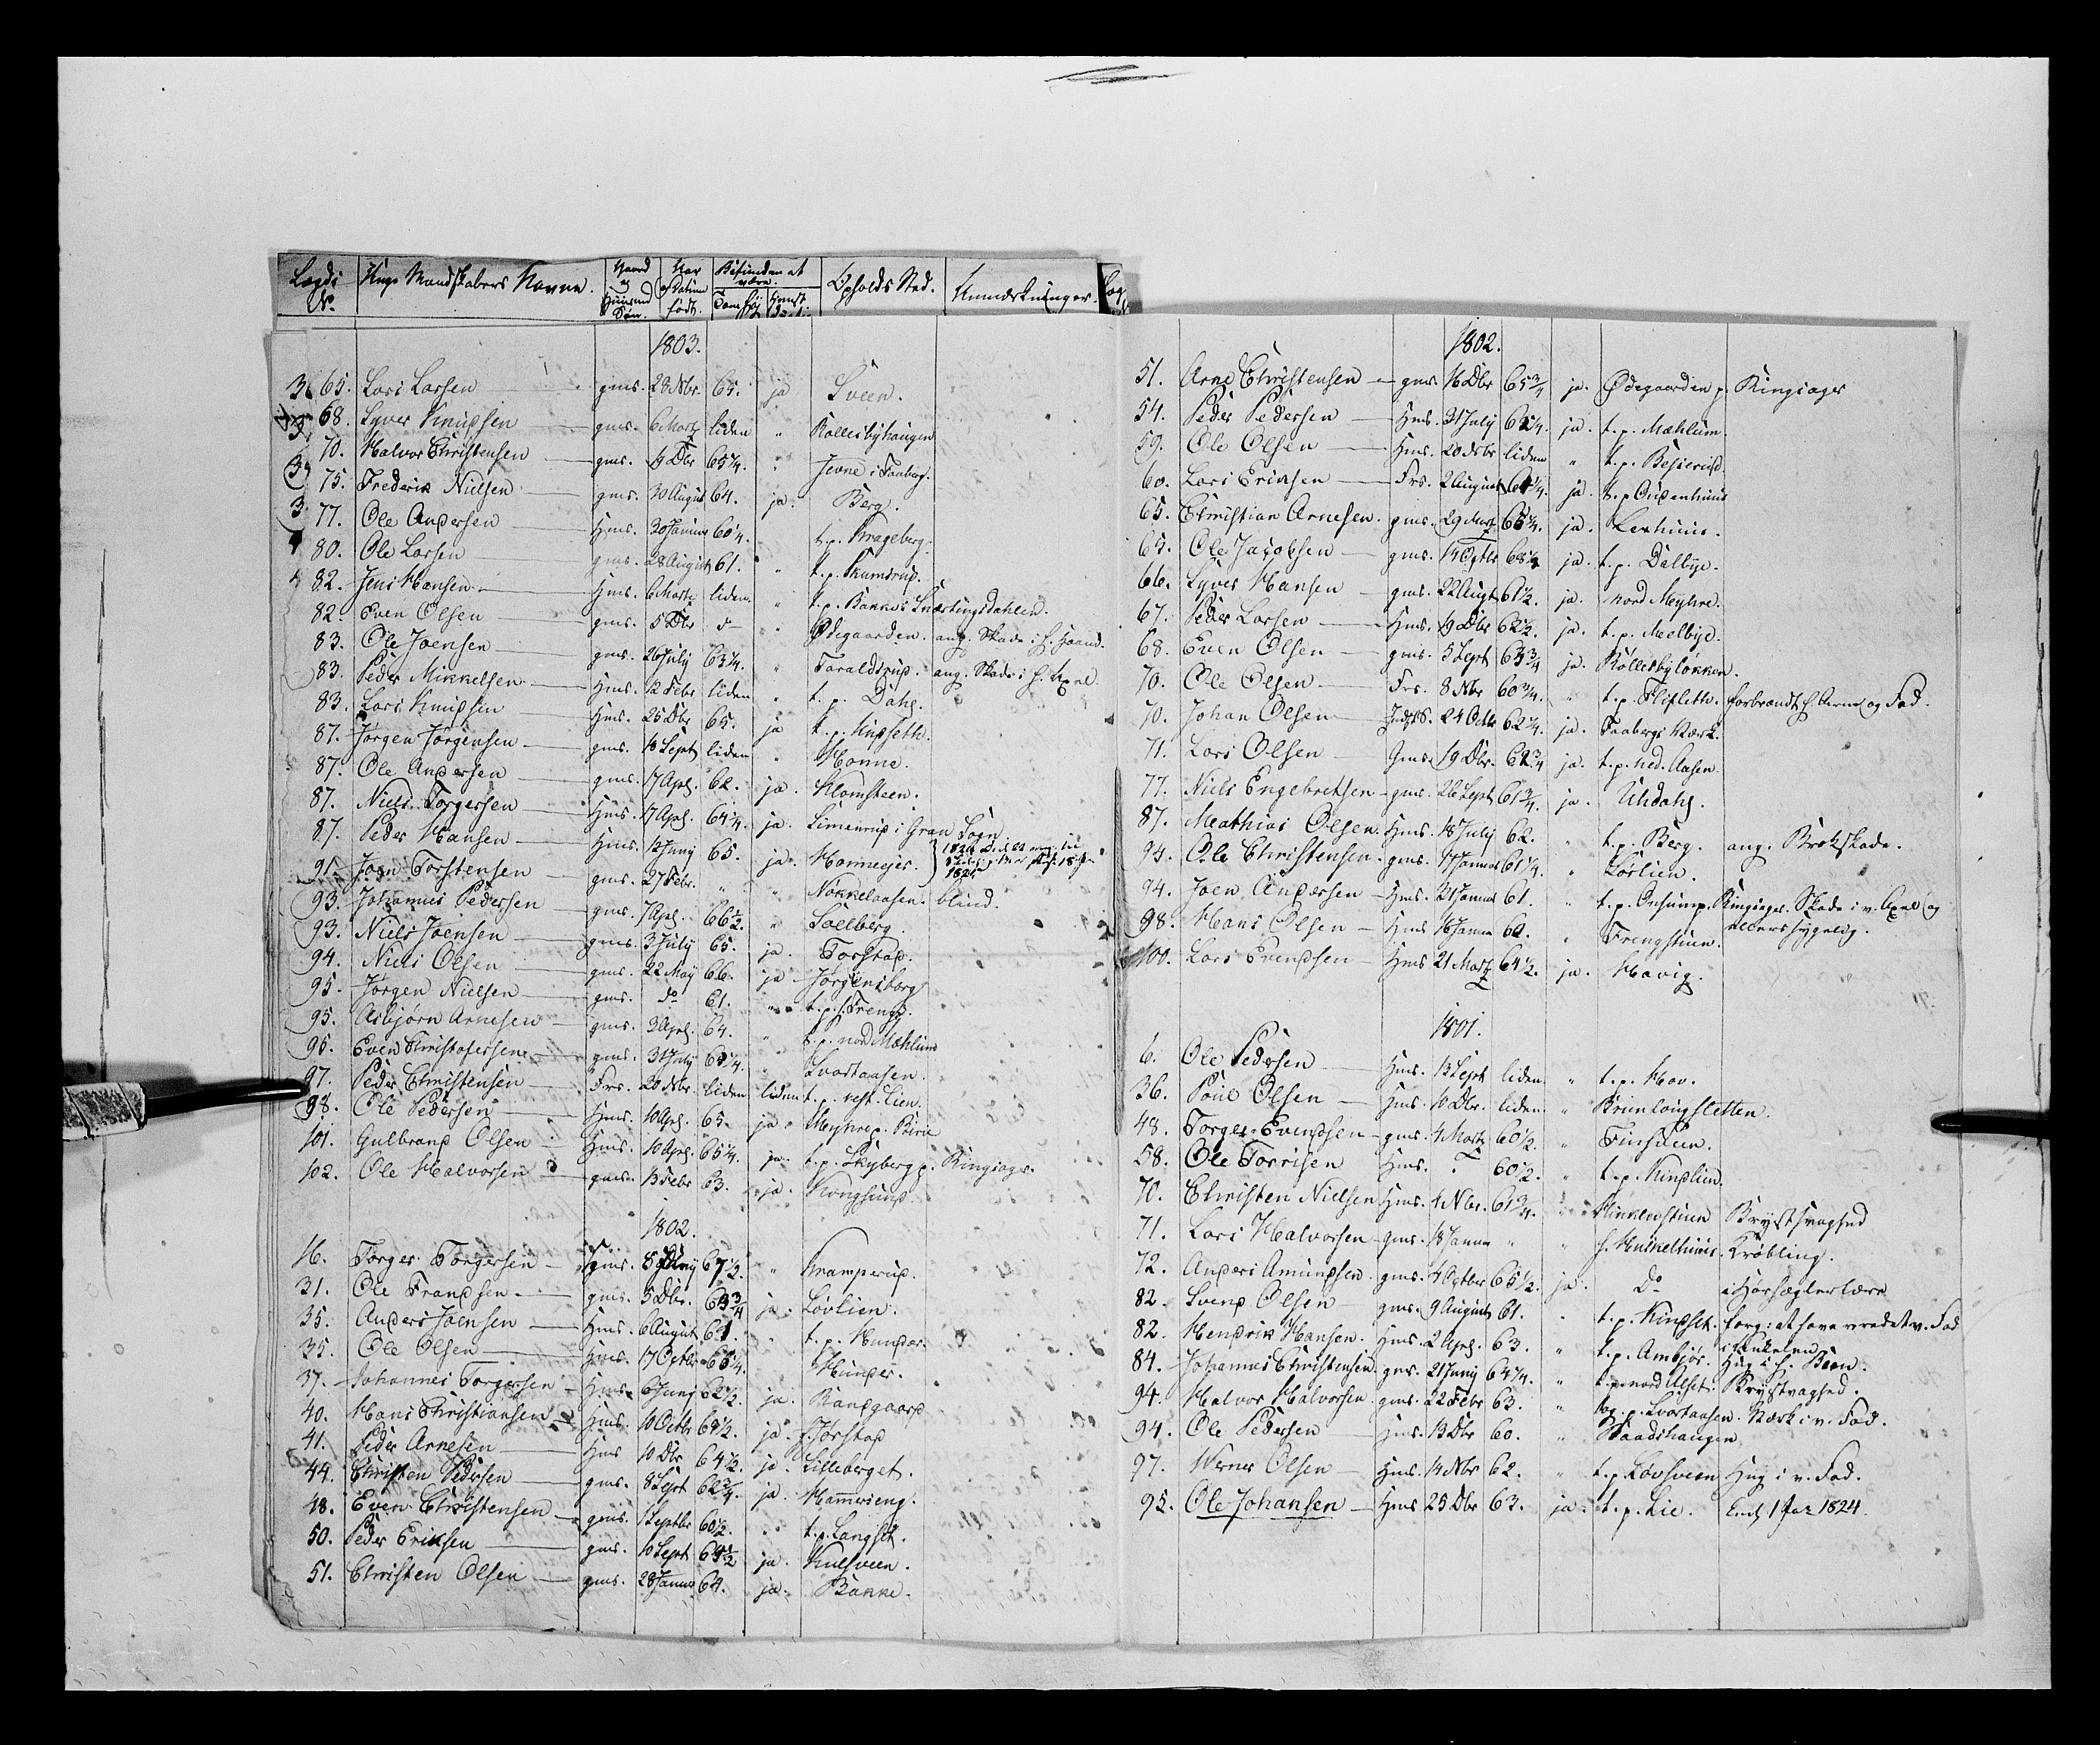 Lægds No. Unge Mandskabers Navne. Gaard og Huusmd Søn. Naar og datum født. Befunden at være. Tommer Tienst Upholds Sted. Anmærkninger.
1803.
65. Lars Larsen gms. 28 Nbr. 65. ja Sveen.
68. Syver Knudsen gms. 6 Marts liden " Rollesbyhaugen
70. Halvor Christensen gms. 19 Dbr 65¼. " Jevne i Faaberg.
75. Frederik Nielsen gms. 30 August 64. ja. Berg.
77. Ole Andersen Hms. 30 Januar 60¼. t.p. Krageberg.
80. Ole Larsen gms. 28 August 61. " t.p. Skumsrud.
82. Jens Hansen Hms. 6 Marts liden. " t.p. Bakke Snærtingsdahlen.
82. Even Olsen gms. 5 Dbr do " Ødegaarden. ang. Skade i h. Haand.
83. Ole Joensen gms. 26 July 63¼. " Taraldsrud. ang. Skade i h. Axel.
83. Peder Mikkelsen Hms. 12 Febr liden " t.p. Dahl.
83. Lars Knudsen Hms. 25 Dbr 65. ja t.p. Undseth.
87. Jørgen Jørgensen gms. 18 Sept liden " Honne.
87. Ole Andersen gms. 17 Apl. 62. ja. Klomsteen.
87. Niels Torgersen Hms. 17 Apl. 64¼. ja. i Gran Sogn
87. Peder Hansen Hms. 12 Juny 65. ja. Honneejer.
91. Joen Torstensen gms. 27 Febr. " " Nøkkelaasen. blind.
93. Johannes Pedersen gms. 7 Apl. 66½. " Soelberg.
93. Niels Joensen gms. 3 July 65. ja. Torstad.
94. Niels Olsen gms. 22 May 66. ja Jørgensborg
95. Jørgen Nielsen gms. do 61. " t.p. Freng.
95. Asbjørn Arnesen gms. 3 Apl. 64. " t.p. nord Mæhlum
95. Even Christofersen gms. 31 July 60¼. " Svartaasen.
97. Peder Christensen Frs. 20 Nbr. liden liden t.p. vest. Lien.
98. Ole Pedersen Hms. 10 Apl. 65. ja. Meyhre p. Biri
101. Gulbrand Olsen Hms. 10 Apl. 65¼. ja. t.p. Skyberg p. Ringsager.
102. Ole Halvorsen gms. 13 Febr 63. ja. Kongsund.
1802.
16. Torger Torgersen gms. 8 Juny 67½. " Kramperud.
31. Ole Frandsen gms. 5 Dbr. 63¾ ja. Løvlien.
35. Anders Joensen Hms. 6 August 61. " t.p. Hunder.
35. Ole Olsen Hms. 17 Octbr 66¼. Hunder.
37. Johannes Torgersen Hms. 6 Juny 62½. ja. Randgaard
40. Hans Christiansen Hms. 10 Octbr 68½. ja. Jørstad
41. Peder Arnesen Hms 10 Dbr 64½. ja. Lilleberget.
44. Christen Pedersen gms. 8 Sept 62¾. ja. Hammerseng.
48. Even Christensen gms. 1 Septbr 60½. " t.p. Langset.
50. Peder Eriksen gms. 10 Sept 64½ ja. Kulsveen.
51. Christen Olsen gms. 28 Januar 64. ja. Bakke.
1802.
51. Arne Christensen gms. 16 Dbr 65¾ ja. Ødegaarden p. Ringsager
54. Peder Pedersen Hms. 31 July 62¼. ja. t.p. Mæhlum.
59. Ole Olsen Hms. 20 Nbr liden " t.p. Besserud.
60. Lars Eriksen Frs. 2 August 61¼. ja. t.p. Audenhuus
65. Christian Arnesen. gms. 29 Marts 65¼. ja. Lerhuus.
65. Ole Jacobsen gms. 14 Octbr 68¼ ja. t.p. Dalbye.
66. Syver Hansen gms. 22 Augt 61½. ja. nord Meyhre.
67. Peder Larsen Hms. 19 Dbr 62½. ja. t.p. Meelbye.
68. Even Olsen gms. 5 Sept 63¾ ja. Rollesbyløkken.
70. Ole Olsen Frs. 8 Nbr 60¾. " t.p. Flifleth. forbrændt h. Arme og Fod.
70. Johan Olsen IndstS. 24 Octbr 62¼. ja. Faabergs Værk.
71. Lars Olsen Gms. 19 Dbr. 62¾ ja. t.p. ned. Aasen.
77. Niels Engebretsen gms. 26 Sept 61¾. ja. Uhdahl.
87. Mathias Olsen Hms. 18 July 62. " t.p. Berg. ang. Brokskade.
93. Ole Christensen gms. 17 Januar 61¼. " Lørlien.
94. Joen Andersen Hms. 31 Januar 61. " t.p. Onsum p. Ringsager. Skade i v. Axel og
98. Hans Olsen Hms 16 Januar 62. " Frengstuen. ellers sygelig.
100. Lars Evensen Hms 21 Marts 64½. ja. Havig.
1801.
6. Ole Pedersen Hms. 13 Sept liden. " t.p. Hov.
36. Poul Olsen Hms. 10 Dbr. liden. " Brunlaugsletten.
48. Torger Evensen gms. 4 Marts 60½. " Furstuen.
58. Ole Torrisen Hms. ? 60½. " t.p. Kindlien.
70. Christen Nielsen Hms. 4 Nbr. 61¾. " Vinklerstuen Brystsvaghed
71. Lars Halvorsen gms. 18 Januar " " s. Hukelhuus. Krøbling.
72. Anders Amundsen gms. 4 Octbr 65½. ja. Do
82. Svend Olsen gms. 9 August 61. " t.p. Kindset. forg. at have v. Fod
82. Hendrik Hansen. Hms. 2 Apl. 63. " t.p. Ambjør. Hug i h. Been.
84. Johannes Christensen. gms. 21 Juny 64¼. " t.p. nord Ulset. Brystvaghed.
94. Halvor Halvorsen gms. 22 Febr 63. " t.p. Svartaasen. Værk i v. Fod.
94. Ole Pedersen Hms. 13 Dbr 60. " Staadshaugen
97. Werner Olsen Hms. 14 Nbr 62. " t.p. Løvsveen Hug i v. Fod.
95. Ole Johansen Hms 25 Dbr 63. ja. t.p. Lie. Endl 1 Jar 1824.